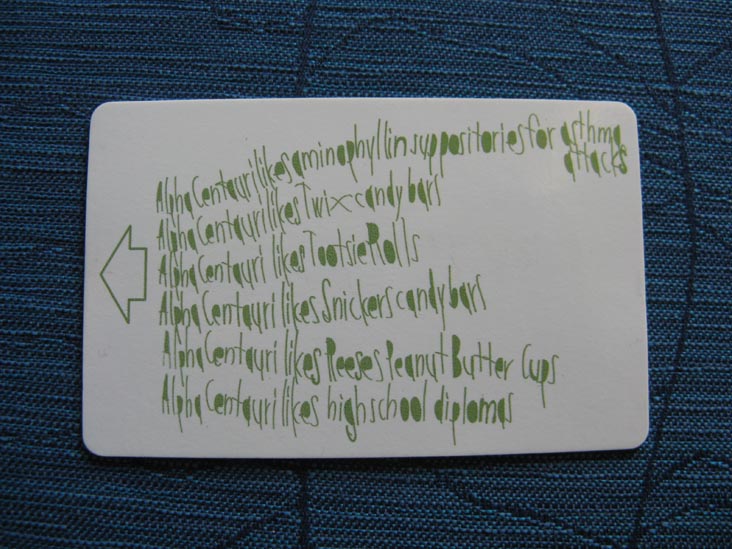 Alpha Centauri likes aminophyllin suppositories for asthma
attacks
Alpha Centauri likes Twix candy bars
Alpha Centauri likes Tootsie Rolls
Alpha Centauri likes Snickers candy bars
Alpha Centauri likes Reeses Peanut Butter Cups
Alpha Centauri likes high school diplomas